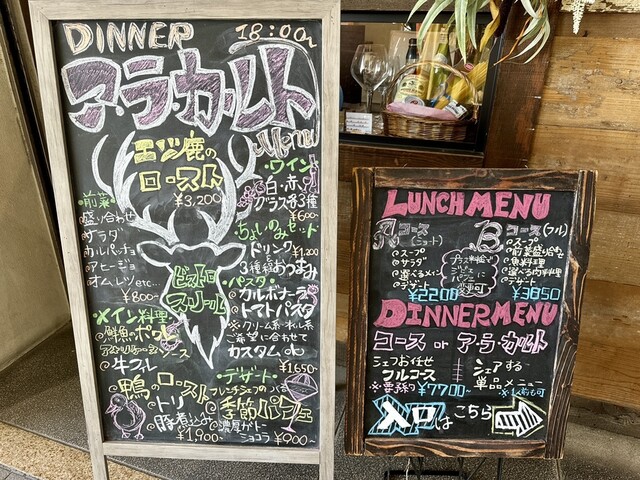 DINNER 18:00~
ア・ラ・カ・ル・ト
Menu
エゾ鹿の
ロースト
¥3,200
・前菜・
盛り合わせ
サラダ
カルパッチョ
アヒージョ
オムレツetc...
¥800~
・メイン料理
鮮魚のポワレ
ソース
牛フィレ
鴨のロースト
トリ
豚煮込み
¥1,900~
ビストロ
スリール
・ワイン
白・赤
グラス各3種
¥600~
・ちょいのみセット
ドリンク ¥1,200
と
3種おつまみ
・パスタ・
カルボナーラ
トマトパスタ
※クリーム系・オイル系
ご希望に合わせて
カスタムok
¥1,650~
・デザート・
フレンチシェフの
季節パフェ
濃厚ガトー
ショコラ ¥900~
LUNCH MENU
Aコース
(ショート)
スープ
サラダ
選べるメイン
デザート
¥2200
プラス料金で
デザートを
パフェに
変更可
Bコース(フル)
スープ
前菜盛り合せ
魚料理
選べる肉料理
デザート
¥3850
DINNER MENU
コース or ア・ラ・カルト
シェフお任せ
フルコース
※要予約 ¥7700~
シェアする
単品メニュー
※1人前も可
入口はこちら